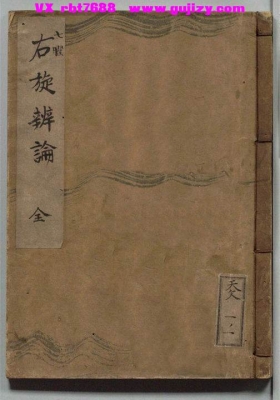 VX cht7688 www.gujizy.com
七曜
右旋辨論 全
天文 一ノ一